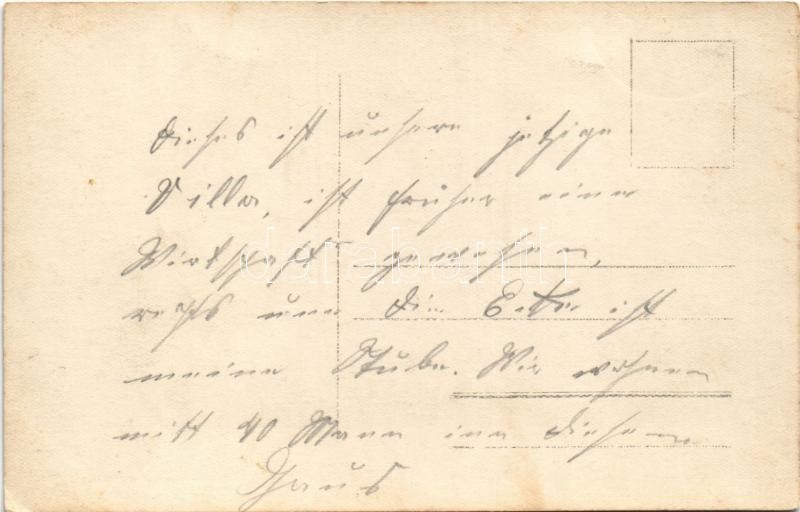 Dieses ist unsere jetzige
Villa, ist früher eine
Wirtschaft gewesen,
rechts um die Ecke ist
meine Stube. Wir wohnen
mitt 40 Mann inn diesem
Haus
darabanth